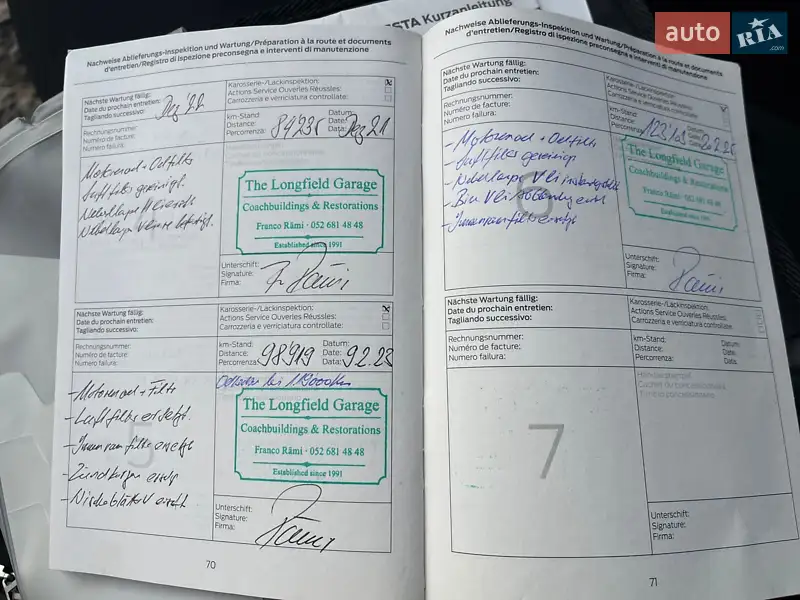 STA Kurzanleitung
auto RIA .com
Nachweise Ablieferungs-Inspektion und Wartung/Préparation à la route et documents
d'entretien/Registro di ispezione preconsegna e interventi di manutenzione
Nächste Wartung fällig:
Date du prochain entretien:
Tagliando successivo:
Dez 22
Karosserie-/Lackinspektion:
Actions Service Ouvertes Réussies:
Carrozzeria e verniciatura controllate:
Rechnungsnummer:
Numéro de facture:
Numero failura:
km-Stand
Distance:
Percorrenza:
84235
Datum:
Date:
Data:
Dez 21
Motorenoel + Oelfilter
Luftfilter gereinigt.
The Longfield Garage
Coachbuildings & Restorations
Franco Rämi · 052 681 48 48
Established since 1991
Unterschrift:
Signature:
Firma:
Nächste Wartung fällig:
Date du prochain entretien:
Tagliando successivo:
Karosserie-/Lackinspektion:
Actions Service Ouverles Réussles:
Carrozzeria e verniciatura controllate:
Rechnungsnummer:
Numéro de facture:
Numero failura:
km-Stand:
Distance:
Percorrenza:
98919
Datum:
Date:
Data:
9.2.23
5
- Motorenoel + Filter
- Luftfilter ersetzt.
- Innenraumfilter ersetzt
- Zündkerzen ersetzt
The Longfield Garage
Coachbuildings & Restorations
Franco Rämi · 052 681 48 48
Established since 1991
Unterschrift:
Signature:
Firma:
70
Nachweise Ablieferungs-Inspektion und Wartung/Préparation à la route et documents
d'entretien/Registro di ispezione preconsegna e interventi di manutenzione
Nächste Wartung fällig:
Date du prochain entretien:
Tagliando successivo:
Karosserie-/Lackinspektion:
Actions Service Ouverles Réussles:
Carrozzeria e verniciatura controllate:
Rechnungsnummer:
Numéro de facture:
Numero failura:
km-Stand
Distance:
Percorrenza:
Datum:
Date:
Data:
6
- Motorenoel + Oelfilter
- Luftfilter gereinigt
- Innenraumfilter ersetzt
The Longfield Garage
Coachbuildings & Restorations
Franco Rämi · 052 681 48 48
Established since 1991
Unterschrift:
Signature:
Firma:
Nächste Wartung fällig:
Date du prochain entretien:
Tagliando successivo:
Karosserie-/Lackinspektion:
Actions Service Ouverles Réussles:
Carrozzeria e verniciatura controllate:
Rechnungsnummer:
Numéro de facture:
Numero failura:
km-Stand:
Distance:
Percorrenza:
Datum:
Date:
Data:
7
Unterschrift:
Signature:
Firma:
71